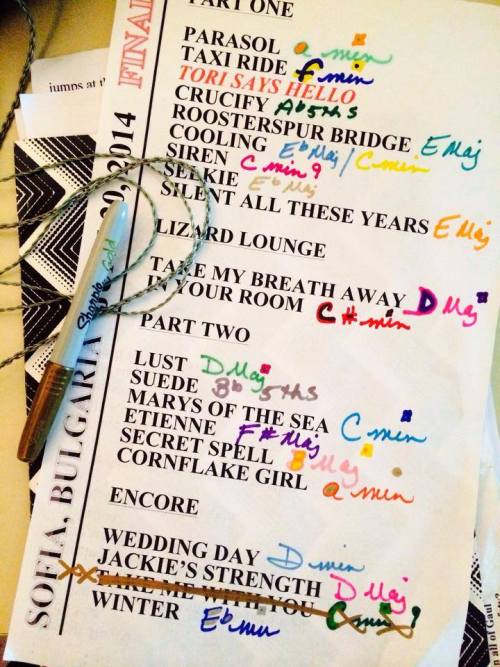 PART ONE
PARASOL a min
TAXI RIDE F min
TORI SAYS HELLO
CRUCIFY Ab 5ths
ROOSTERSPUR BRIDGE E Maj
COOLING Eb Maj / C min
SIREN C min 9
SELKIE Eb Maj
SILENT ALL THESE YEARS E Maj
LIZARD LOUNGE
TAKE MY BREATH AWAY D Maj
IN YOUR ROOM C# min
PART TWO
LUST D Maj
SUEDE Bb 5ths
MARYS OF THE SEA C min
ETIENNE F# Maj
SECRET SPELL B Maj
CORNFLAKE GIRL a min
ENCORE
WEDDING DAY D min
JACKIE'S STRENGTH D Maj
TAKE ME WITH YOU C min
WINTER Eb
SOFIA, BULGARIA 2014 FINAL
Sharpie Gold
jumps at th
all of Gaul